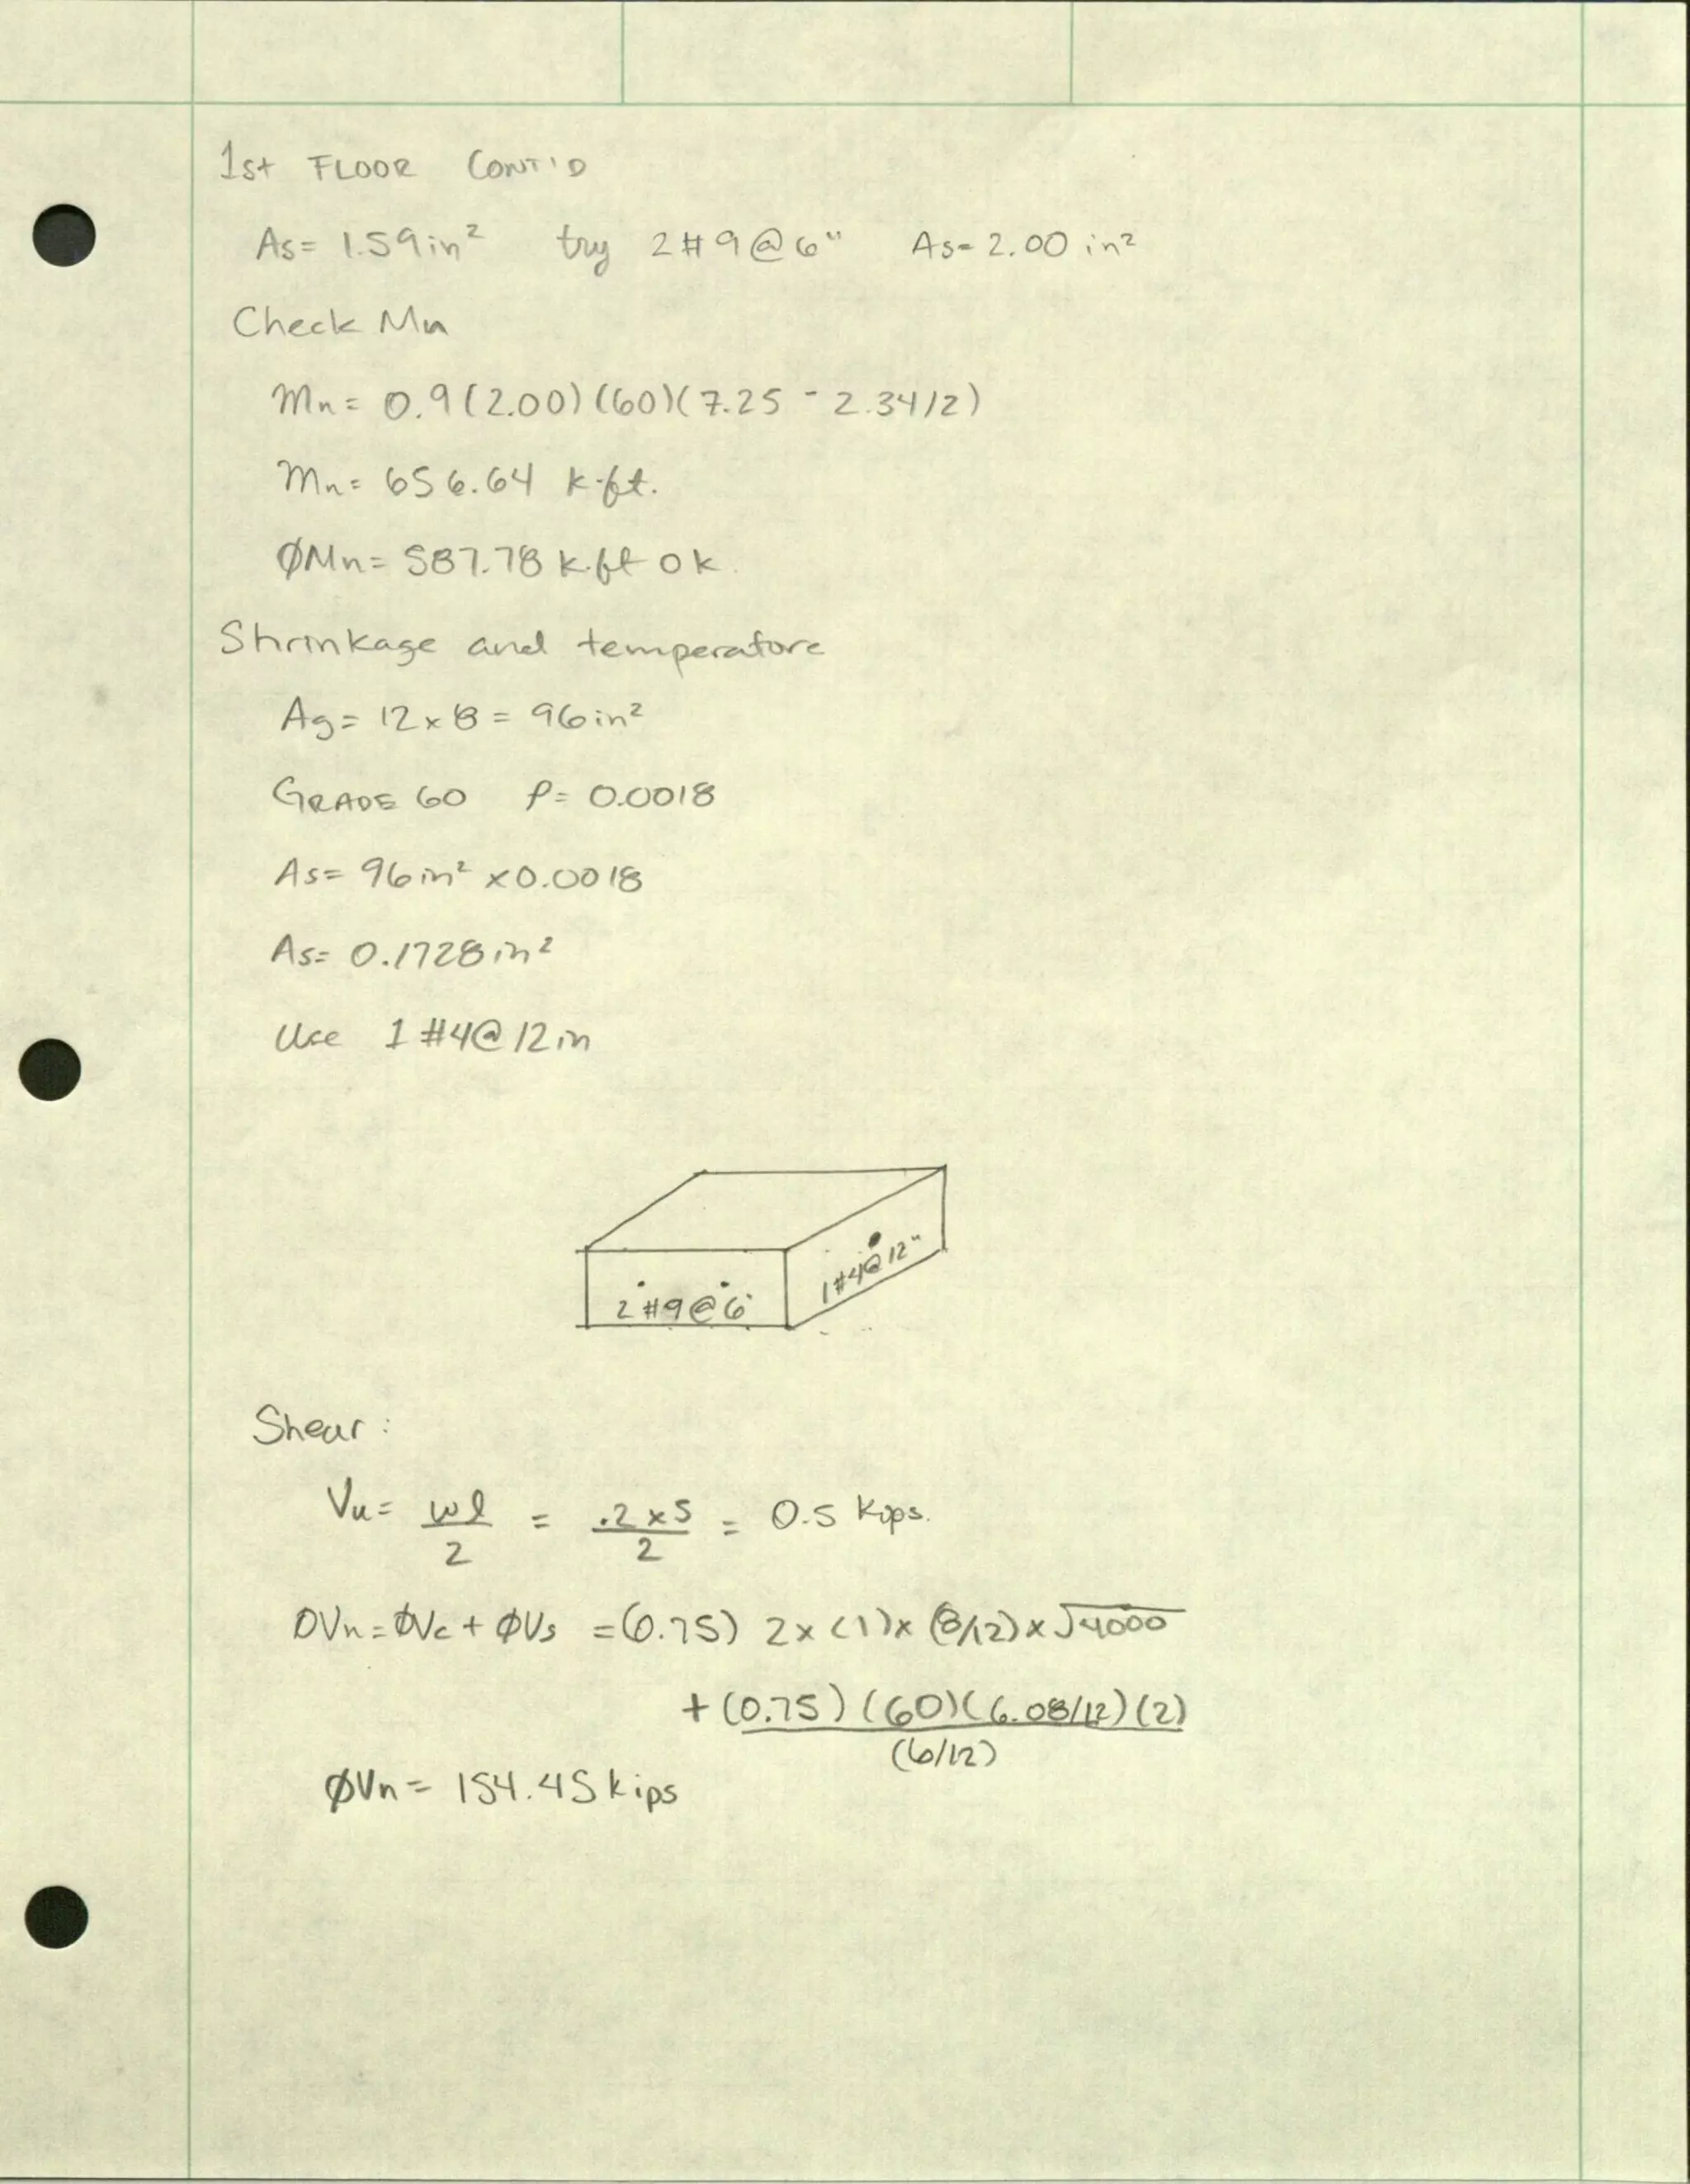 1st FLOOR CONT'D
As= 1.59in² try 2#9@6" As=2.00 in²
Check Mn
Mn= 0.9(2.00)(60)(7.25 - 2.34/2)
Mn= 656.64 k·ft.
ØMn= 587.78 k·ft ok.
Shrinkage and temperature
Ag= 12x8 = 96in²
GRADE 60 ρ= 0.0018
As= 96in² x0.0018
As= 0.1728in²
Use 1 #4@12in
1#4@12"
2#9@6"
Shear:
Vu= wl/2 = .2x5/2 = 0.5 Kips.
ØVn=ØVc+ØVs =(0.75) 2x(1)x(8/12)x√4000
+(0.75)(60)(6.08/12)(2)/(6/12)
ØVn= 154.45kips